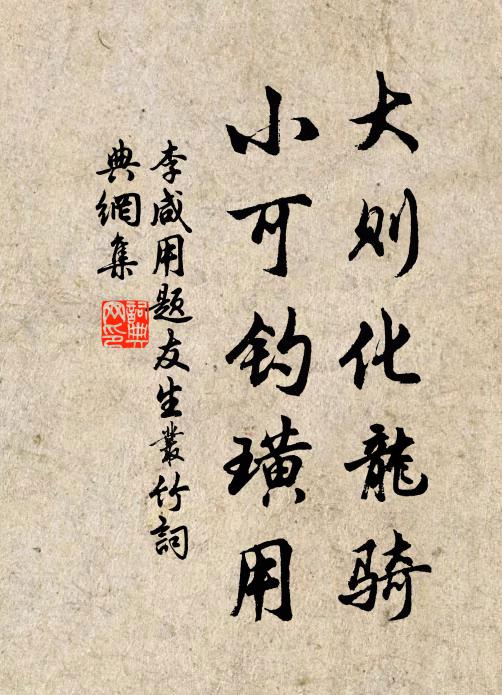 大则化龍骑
小可钓璜用
李咸用题友生叢竹詞
典網集
詞典
网印